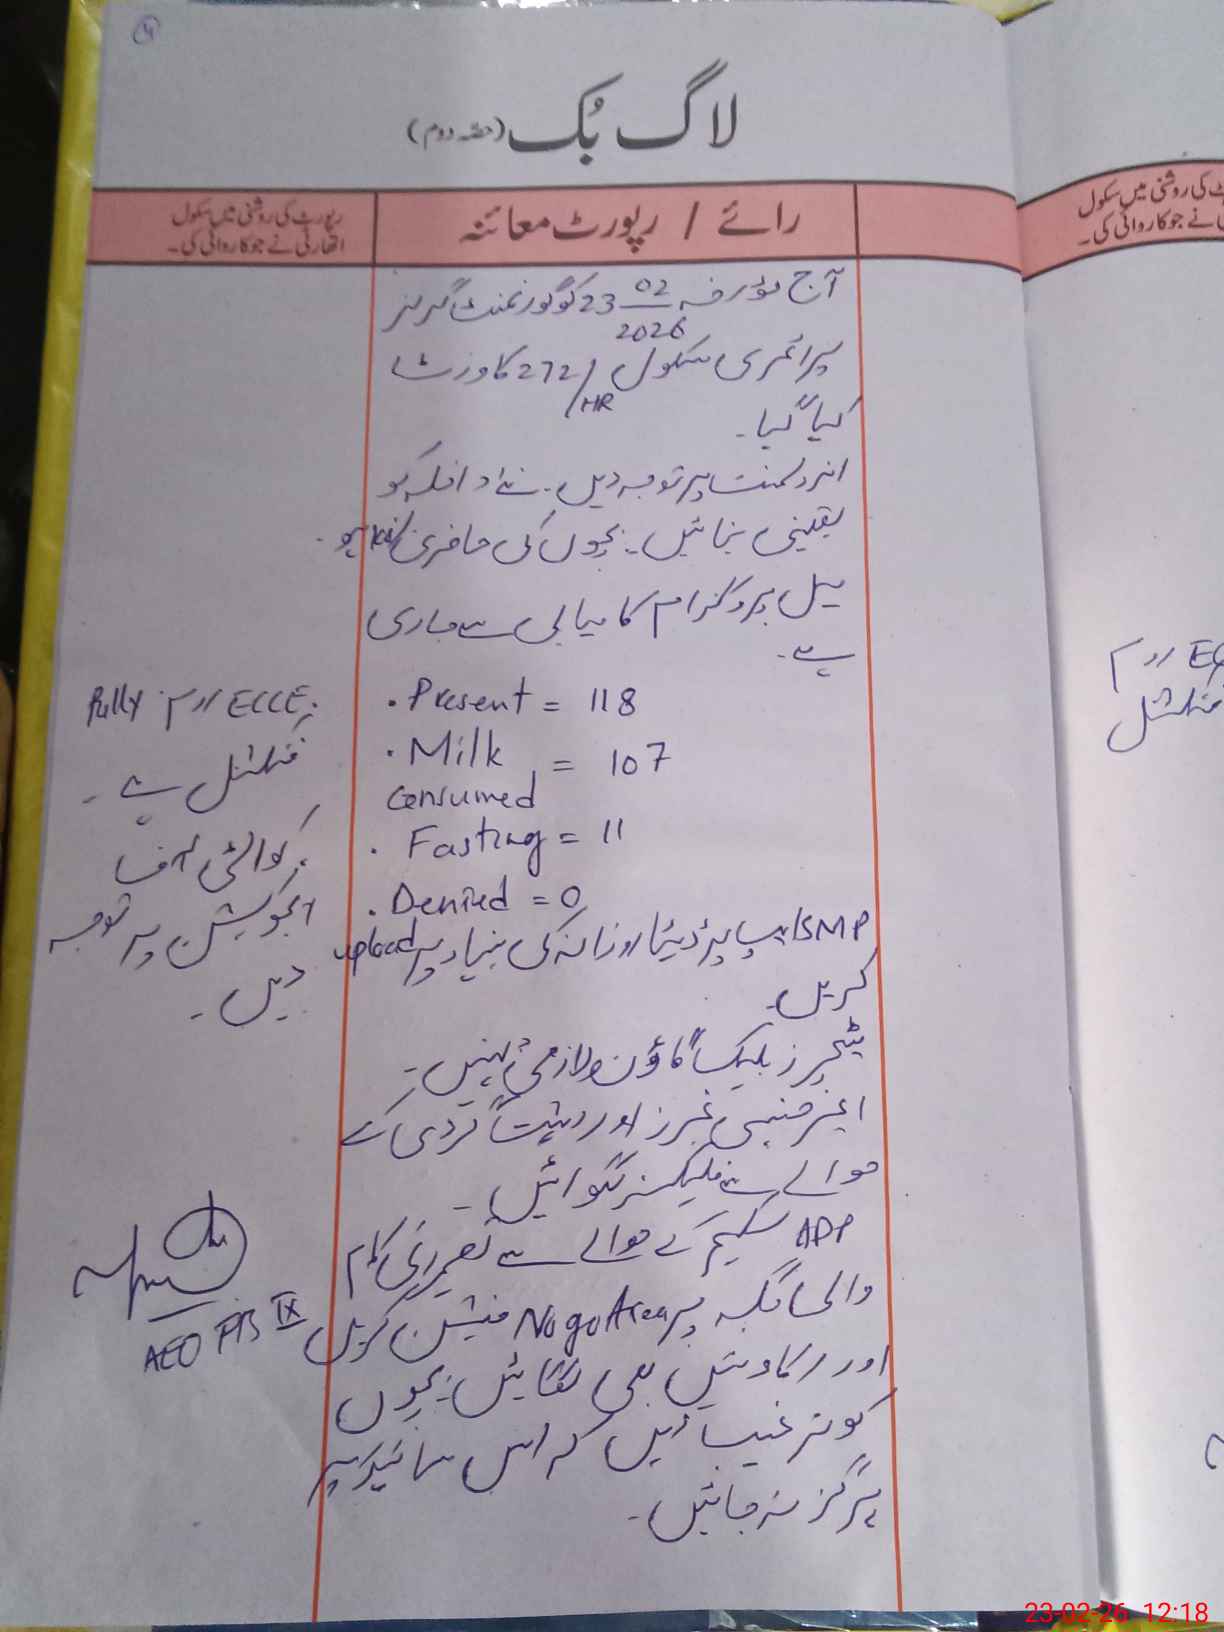 لاگ بُک (حصہ دوم)
رائے / رپورٹ معائنہ
رپورٹ کی روشنی میں سکول
اتھارٹی نے جو کاروائی کی۔
آج مؤرخہ 23 02 2026 کو گورنمنٹ گرلز
پرائمری سکول 272/HR کا وزٹ
کیا گیا۔
انرولمنٹ پر توجہ دیں۔ نئے داخلہ کو
یقینی بنائیں۔ بچوں کی حاضری
میل پروگرام کامیابی سے جاری
ہے۔
• Present = 118
• Milk Consumed = 107
• Fasting = 11
• Denied = 0
SMP ایپ پر ڈیٹا روزانہ کی بنیاد پر upload
کریں۔
ٹیچرز بلیک گاؤن لازمی پہنیں۔
ایمرجنسی نمبرز اور دہشت گردی کے
حوالے سے فلیکسز لگوائیں۔
ADP سکیم کے حوالے سے تعمیراتی کام
والی جگہ پر No go Area مینشن کریں
اور رکاوٹیں بھی لگائیں۔ بچوں
کو ترغیب دیں کہ اس سائیڈ پر
ہرگز نہ جائیں۔
ECCE روم fully
فنکشنل ہے۔
کوالٹی آف
ایجوکیشن پر توجہ
دیں۔
AEO IX
کی روشنی میں سکول
نے جو کاروائی کی۔
روم
فنکشنل
23-02-26 12:18